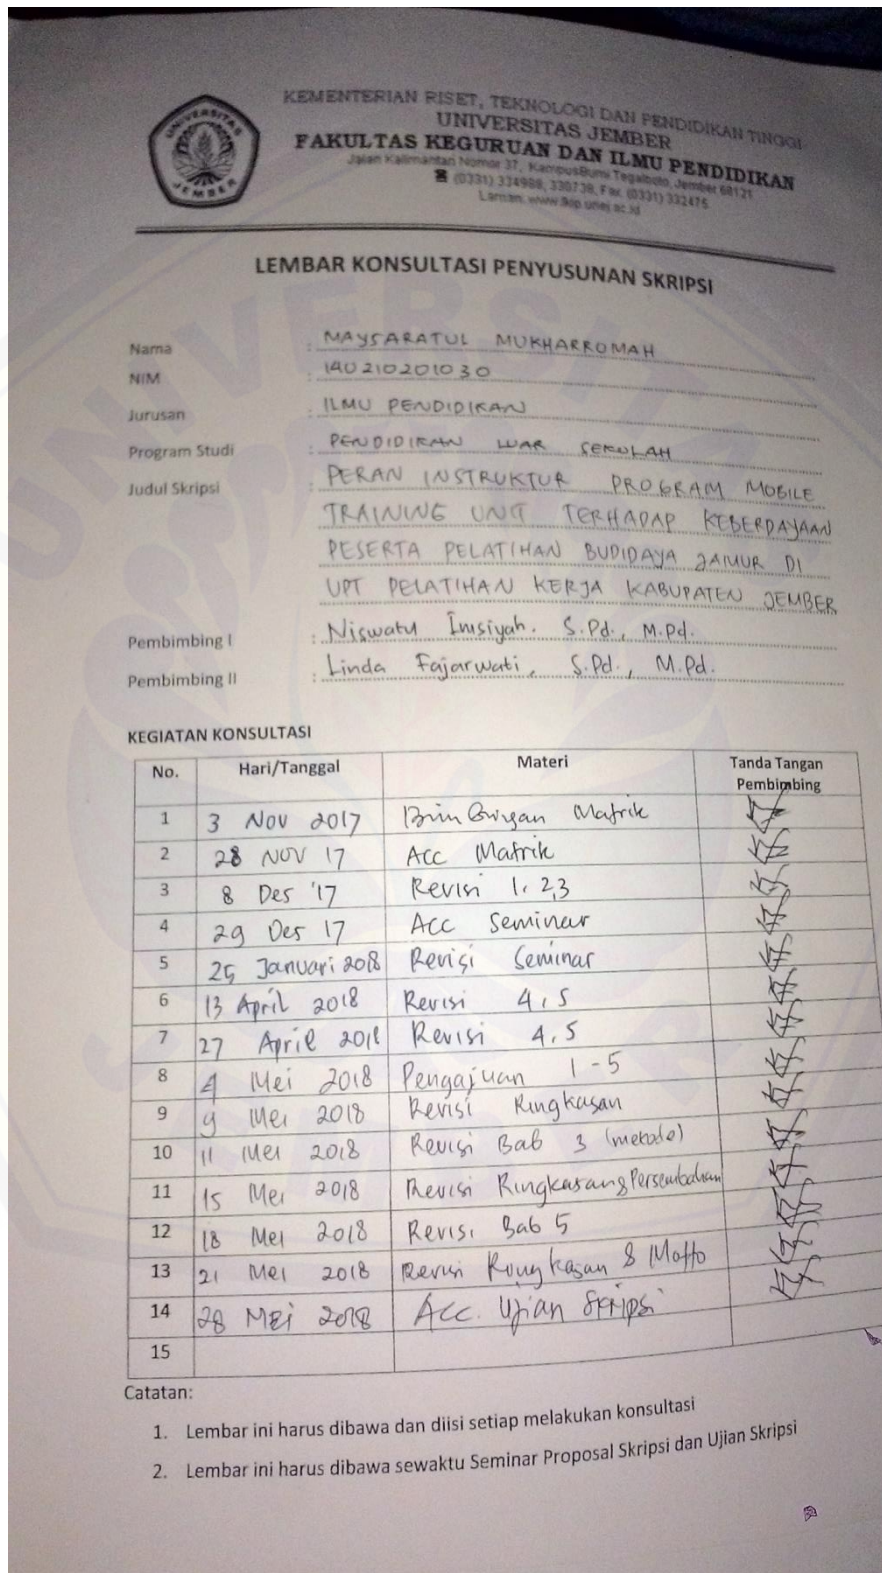 KEMENTERIAN RISET, TEKNOLOGI DAN PENDIDIKAN TINGGI
UNIVERSITAS JEMBER
FAKULTAS KEGURUAN DAN ILMU PENDIDIKAN
Jalan Kalimantan Nomor 37, KampusBumi Tegalboto Jember 68121
(0331) 334988, 330738, Fax. (0331) 332475
Laman: www.fkip.unej.ac.id
UNIVERSITAS JEMBER
LEMBAR KONSULTASI PENYUSUNAN SKRIPSI
Nama : MAYSARATUL MUKHARROMAH
NIM : 140210201030
Jurusan : ILMU PENDIDIKAN
Program Studi : PENDIDIKAN LUAR SEKOLAH
Judul Skripsi : PERAN INSTRUKTUR PROGRAM MOBILE
TRAINING UNIT TERHADAP KEBERDAYAAN
PESERTA PELATIHAN BUDIDAYA JAMUR DI
UPT PELATIHAN KERJA KABUPATEN JEMBER
Pembimbing I : Niswatu Imsiyah. S.Pd., M.Pd.
Pembimbing II : Linda Fajarwati, S.Pd., M.Pd.
KEGIATAN KONSULTASI
No. Hari/Tanggal Materi Tanda Tangan Pembimbing
1 3 Nov 2017 Bimbingan Matrik
2 28 NOV 17 Acc Matrik
3 8 Des '17 Revisi 1, 2,3
4 29 Des 17 Acc Seminar
5 25 Januari 2018 Revisi Seminar
6 13 April 2018 Revisi 4,5
7 27 April 2018 Revisi 4,5
8 4 Mei 2018 Pengajuan 1-5
9 9 Mei 2018 Revisi Ringkasan
10 11 Mei 2018 Revisi Bab 3 (metode)
11 15 Mei 2018 Revisi Ringkasan & Persembahan
12 18 Mei 2018 Revisi Bab 5
13 21 Mei 2018 Revisi Ringkasan & Motto
14 28 Mei 2018 Acc. Ujian Skripsi
15
Catatan:
1. Lembar ini harus dibawa dan diisi setiap melakukan konsultasi
2. Lembar ini harus dibawa sewaktu Seminar Proposal Skripsi dan Ujian Skripsi